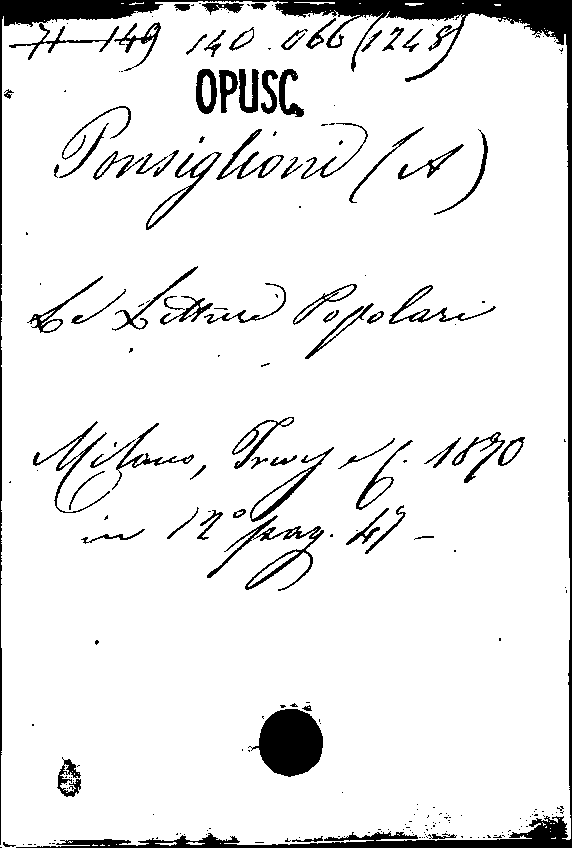 71-149 140.066 (1248)
OPUSC.
Ponsiglioni (A)
Le Letture Popolari
Milano, Trevy e f. 1870
in 12° pag. 47 -